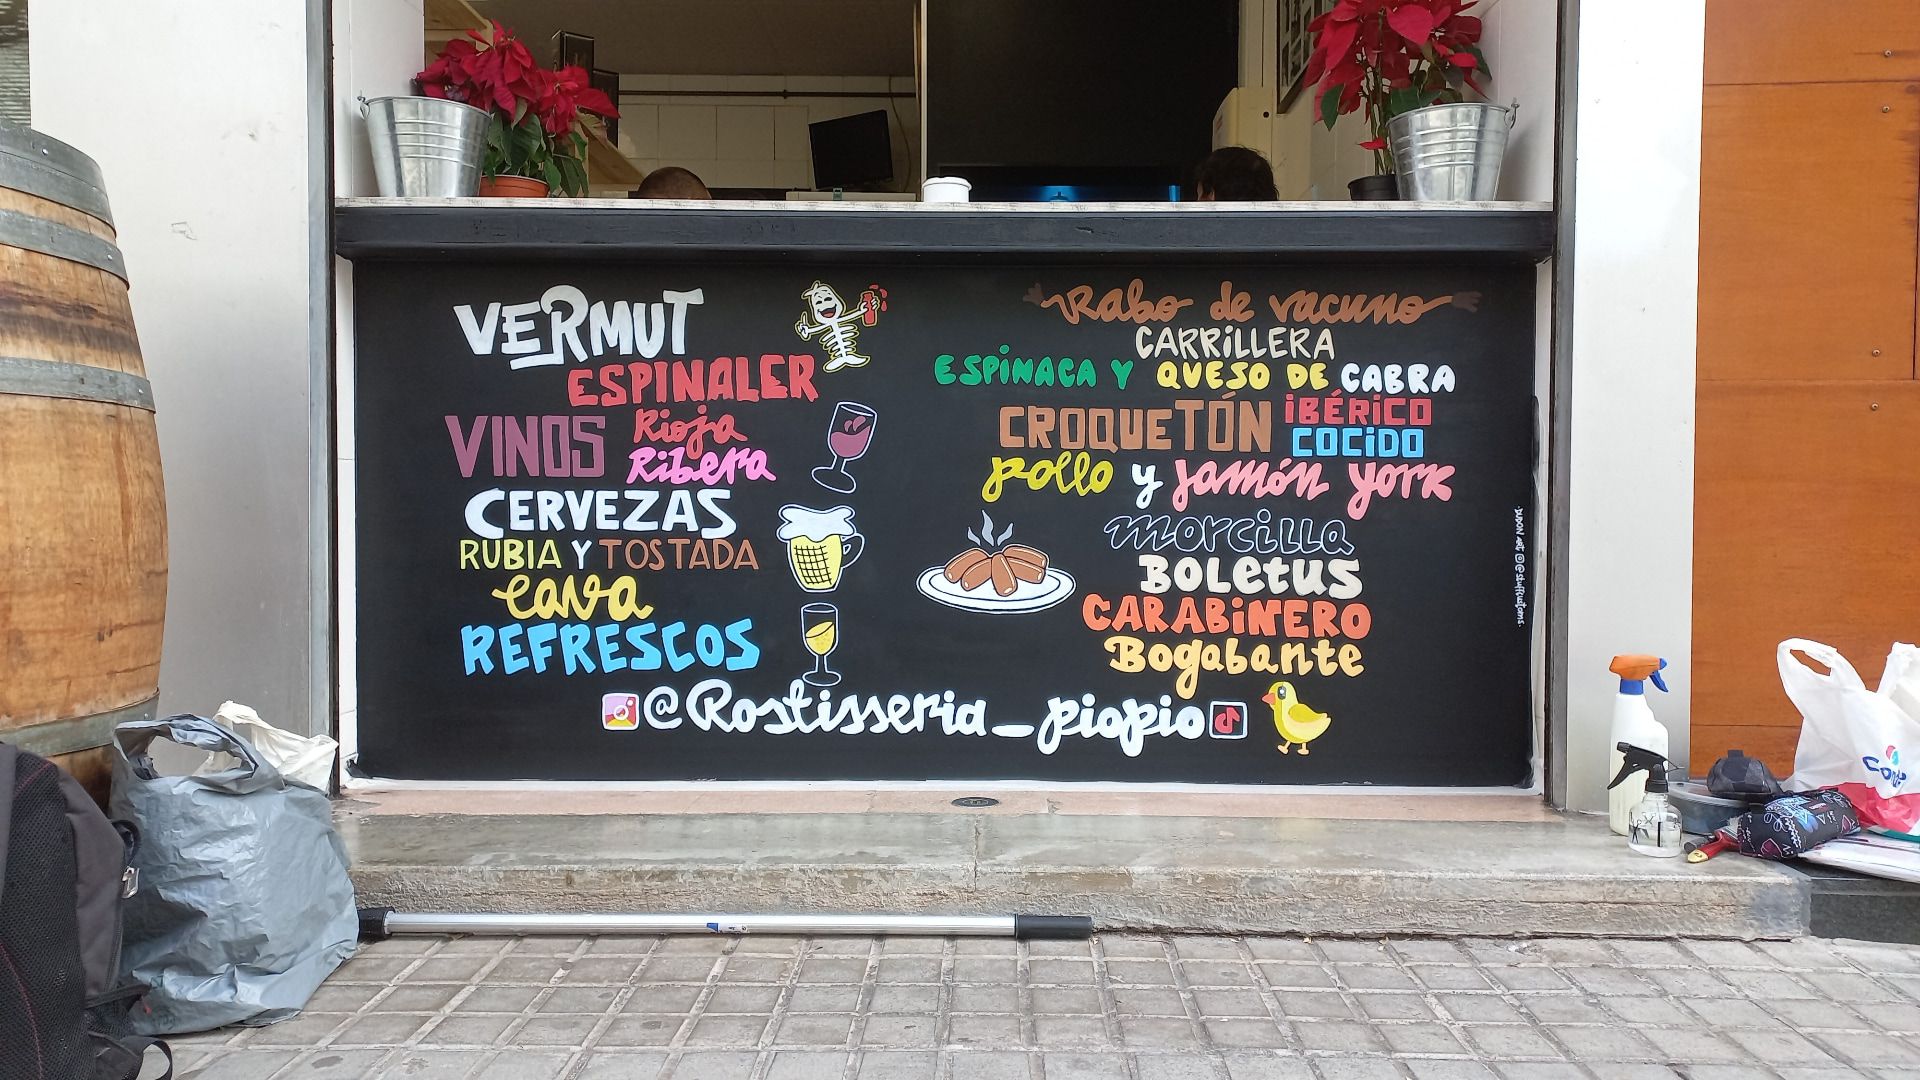 VERMUT
ESPINALER
VINOS Rioja
Ribera
CERVEZAS
RUBIA Y TOSTADA
cava
REFRESCOS
Rabo de vacuno
CARRiLLERA
ESPiNACA Y QUESO DE CABRA
CROQUETÓN iBÉRiCO
COCiDO
pollo y jamón york
morcilla
BOLetus
CARABiNERO
Bogabante
@Rostisseria_piopio